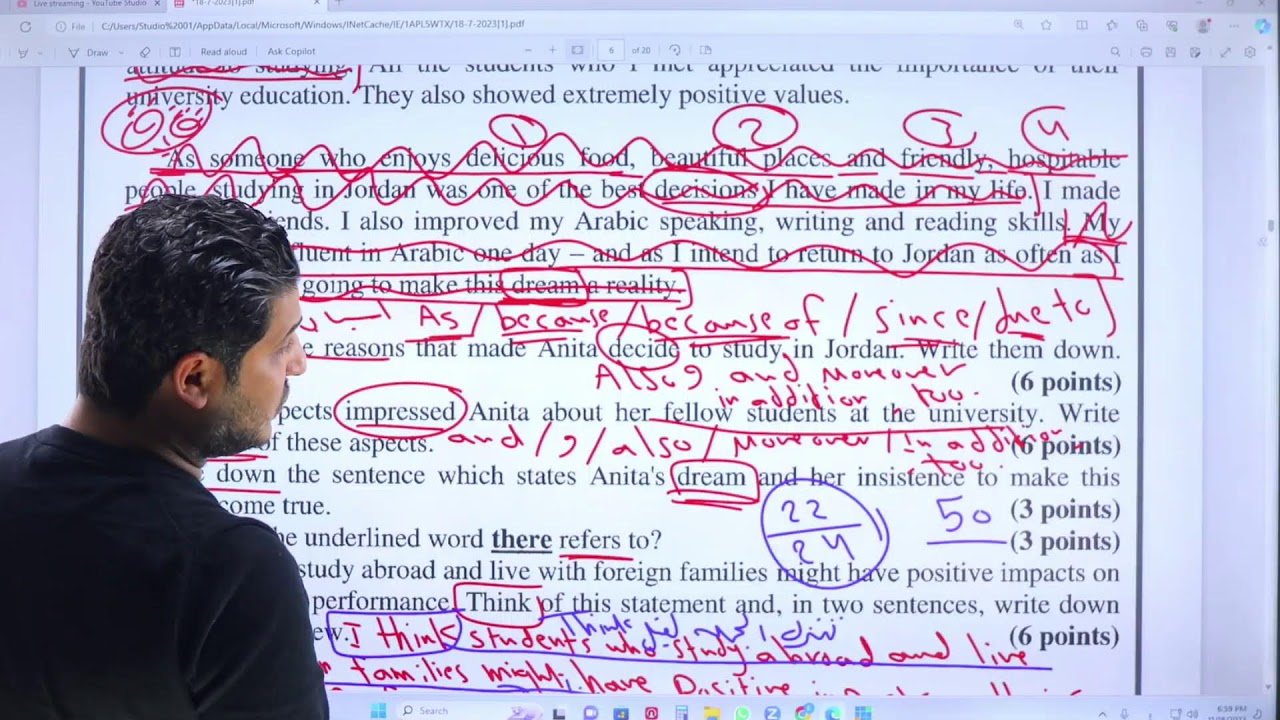 Live streaming - YouTube Studio
18-7-2023[1].pdf
File
C:/Users/Studio%2001/AppData/Local/Microsoft/Windows/INetCache/IE/1APLSWTX/18-7-2023[1].pdf
Draw
Read aloud
Ask Copilot
6
of 20
attitude to studying. All the students who I met appreciated the importance of their
university education. They also showed extremely positive values.
1 2 3 4
As someone who enjoys delicious food, beautiful places and friendly, hospitable
people, studying in Jordan was one of the best decisions I have made in my life. I made
ends. I also improved my Arabic speaking, writing and reading skills. My
fluent in Arabic one day – and as I intend to return to Jordan as often as I
going to make this dream a reality.
As / because / because of / since / due to
e reasons that made Anita decide to study in Jordan. Write them down.
Also, and Moreover
(6 points)
in addition, too.
pects impressed Anita about her fellow students at the university. Write
of these aspects.
and / , / also / Moreover / in addition
(6 points)
, too.
down the sentence which states Anita's dream and her insistence to make this
come true.
22
24
50
(3 points)
he underlined word there refers to?
(3 points)
study abroad and live with foreign families might have positive impacts on
performance. Think of this statement and, in two sentences, write down
ew.
(6 points)
I think students who study abroad and live
families might have Positive
Search
6:59 PM